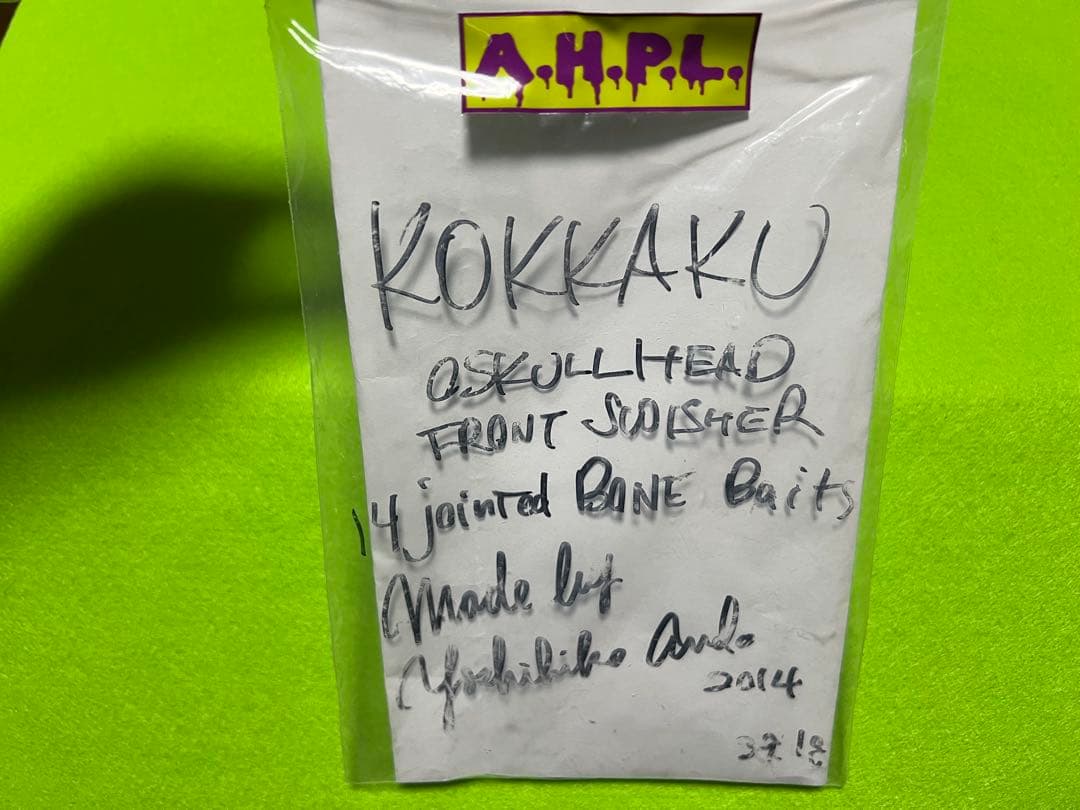 A.H.P.L.
KOKKAKU
@SKULLHEAD
FRONT SWISHER
14 jointed BONE Baits
Made by
Yoshihiko Ando
2014